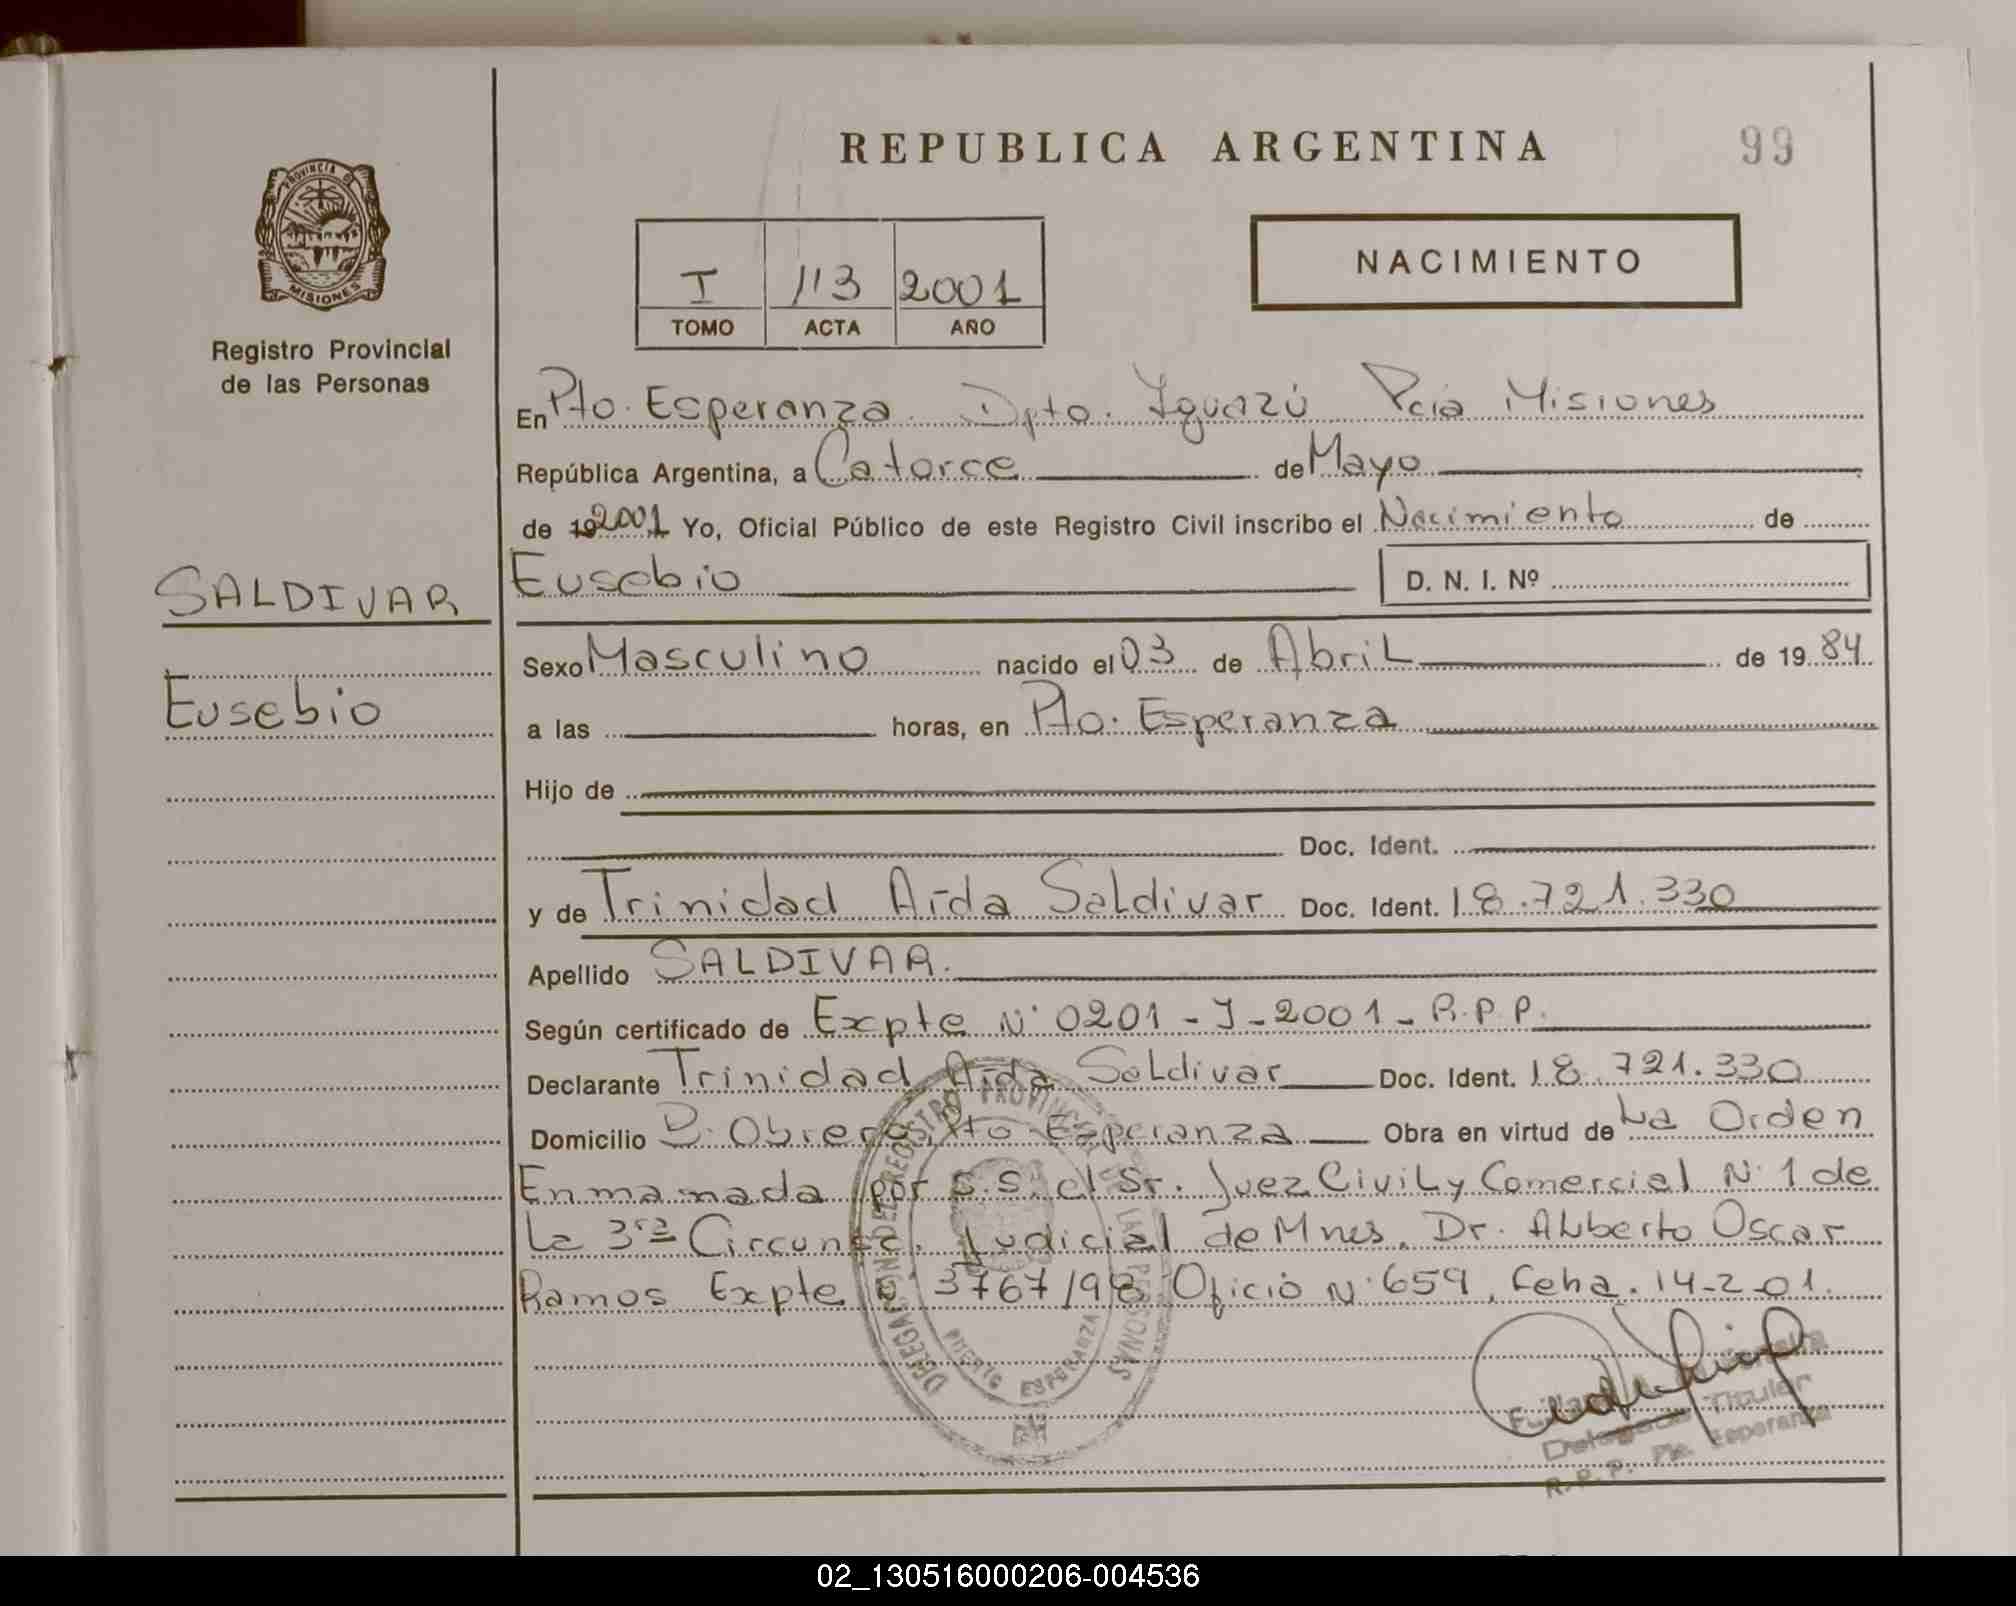 REPUBLICA ARGENTINA
99
PROVINCIA DE
MISIONES
Registro Provincial
de las Personas
I 113 2001
TOMO ACTA AÑO
NACIMIENTO
En Pto. Esperanza Dpto. Iguazú Pcia Misiones
República Argentina, a Catorce de Mayo
de 19 2001 Yo, Oficial Público de este Registro Civil inscribo el Nacimiento de
SALDIVAR
Eusebio D. N. I. Nº
Eusebio
Sexo Masculino nacido el 03 de Abril de 19 84
a las horas, en Pto. Esperanza
Hijo de
Doc. Ident.
y de Trinidad Aída Saldivar Doc. Ident. 18.721.330
Apellido SALDIVAR.
Según certificado de Expte N° 0201-J-2001-R.P.P.
Declarante Trinidad Aída Saldivar Doc. Ident. 18.721.330
Domicilio B. Obrero, Pto Esperanza Obra en virtud de La Orden
Enmamada por S.S. el Sr. Juez Civil y Comercial N° 1 de
La 3ra Circunsc. Judicial de Mnes. Dr. Alberto Oscar
Ramos Expte 3767/98 Oficio N° 659, Feha. 14-2-01.
DELEGACION DEL REGISTRO PROVINCIAL DE LAS PERSONAS
PUERTO ESPERANZA
Titular
R.P.P. Pto. Esperanza
02_130516000206-004536